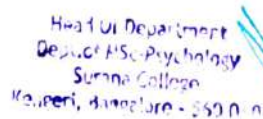 Head of Department
Dept. of MSc-Psychology
Surana College
Kengeri, Bangalore - 560